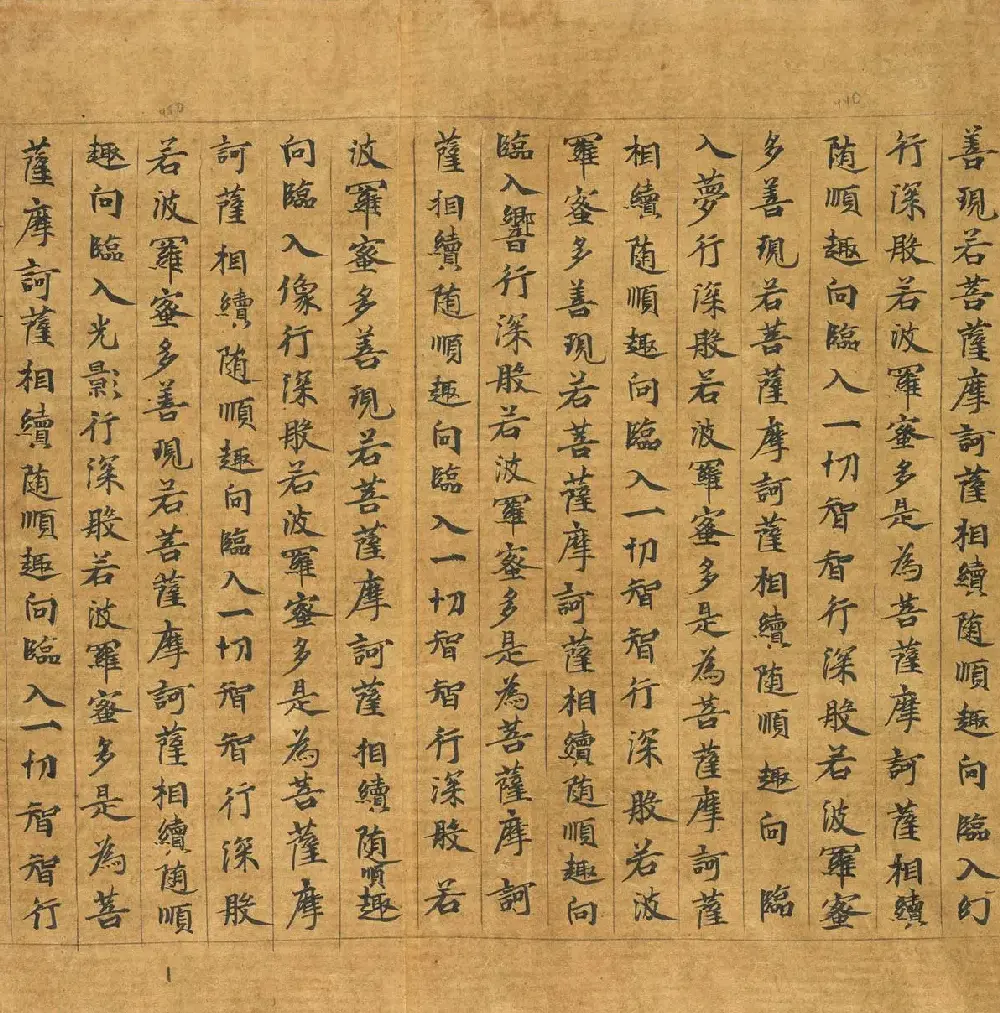 善現若菩薩摩訶薩相續随順趣向臨入幻
行深般若波羅蜜多是為菩薩摩訶薩相續
随順趣向臨入一切智智行深般若波羅蜜
多善現若菩薩摩訶薩相續随順趣向臨
入夢行深般若波羅蜜多是為菩薩摩訶薩
相續随順趣向臨入一切智智行深般若波
羅蜜多善現若菩薩摩訶薩相續随順趣向
臨入響行深般若波羅蜜多是為菩薩摩訶
薩相續随順趣向臨入一切智智行深般若
波羅蜜多善現若菩薩摩訶薩相續随順趣
向臨入像行深般若波羅蜜多是為菩薩摩
訶薩相續随順趣向臨入一切智智行深般
若波羅蜜多善現若菩薩摩訶薩相續随順
趣向臨入光影行深般若波羅蜜多是為菩
薩摩訶薩相續随順趣向臨入一切智智行